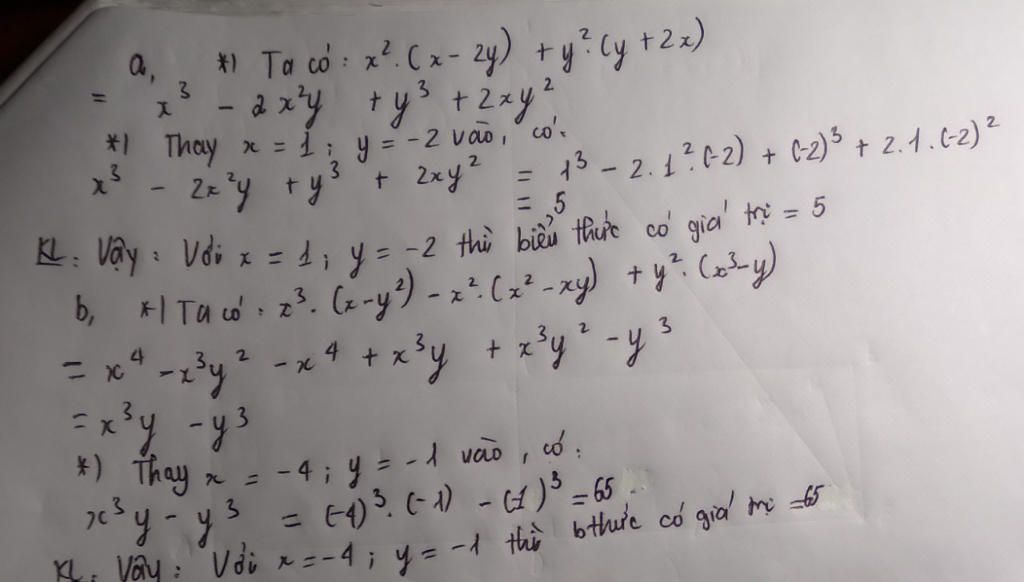 a, *) Ta có: x².(x - 2y) + y².(y + 2x)
= x³ - 2x²y + y³ + 2xy²
*) Thay x = 1; y = -2 vào, có:
x³ - 2x²y + y³ + 2xy² = 1³ - 2.1².(-2) + (-2)³ + 2.1.(-2)²
= 5
KL: Vậy: Với x = 1; y = -2 thì biểu thức có giá trị = 5
b, *) Ta có: x³.(x-y²) - x².(x² - xy) + y².(x³-y)
= x⁴ - x³y² - x⁴ + x³y + x³y² - y³
= x³y - y³
*) Thay x = -4; y = -1 vào, có:
x³y - y³ = (-4)³.(-1) - (-1)³ = 65
KL: Vậy: Với x = -4; y = -1 thì bthức có giá trị = 65